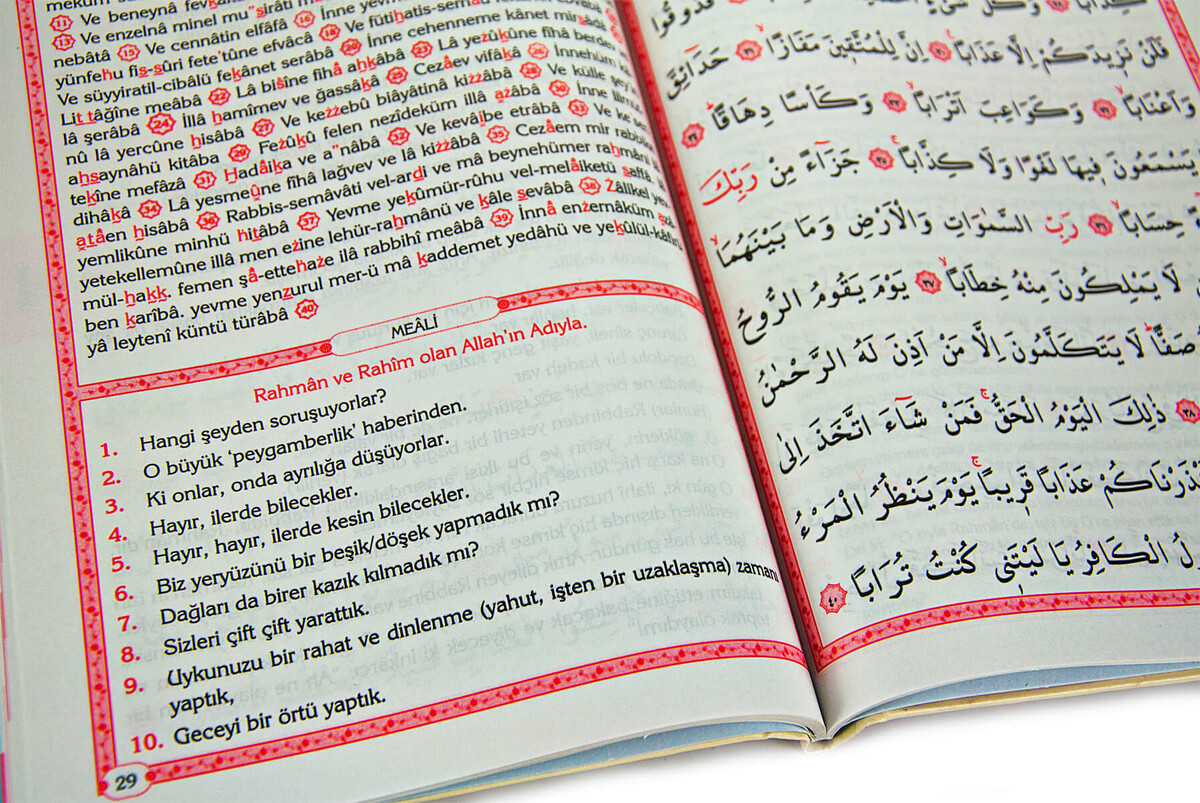 Ve beneynâ fevka
13 Ve enzelnâ minel mu"sirâti m
nebâtâ 15 Ve cennâtin elfâfâ 16 İnne yev
yünfehu fis-sûri fete'tûne efvâcâ 18 Ve fütihatis-sem
Ve süyyiratil-cibâlü fekânet serâbâ 20 İnne cehenneme kânet mirsâd
Lit tâğîne meâbâ 22 Lâ bisîne fîhâ ahkâbâ 23 Lâ yezûkûne fîhâ berden
lâ şerâbâ 24 İllâ hamîmev ve ğassâkâ 25 Cezâev vifâkâ 26 İnnehüm k
nû lâ yercûne hisâbâ 27 Ve kezzebû biâyâtinâ kizzâbâ 28 Ve külle şey'in
ahsaynâhü kitâba 29 Fezûkû felen nezîdeküm illâ azâbâ 30 İnne lilmüt
tekîne mefâzâ 31 Hadâika ve a"nâbâ 32 Ve kevâıbe etrâbâ 33 Ve ke'sen
dihâkâ 34 Lâ yesmeûne fîhâ lağvev ve lâ kizzâbâ 35 Cezâem mir rabbi
atâen hisâbâ 36 Rabbis-semâvâti vel-ardi ve mâ beynehümer rahmâni
yemlikûne minhü hitâbâ 37 Yevme yekûmür-rûhu vel-melâiketü saffâ
yetekellemûne illâ men ezine lehür-rahmânü ve kâle sevâbâ 38 Zâlikel yev
mül-hakk. femen şâ-ettehaze ilâ rabbihî meâbâ 39 İnnâ enzernâküm
ben karîbâ. yevme yenzurul mer-ü mâ kaddemet yedâhü ve yekûlül-kâfiru
yâ leytenî küntü türâbâ 40
MEÂLİ
Rahmân ve Rahîm olan Allah'ın Adıyla.
1. Hangi şeyden soruşuyorlar?
2. O büyük 'peygamberlik' haberinden.
3. Ki onlar, onda ayrılığa düşüyorlar.
4. Hayır, ilerde bilecekler.
5. Hayır, hayır, ilerde kesin bilecekler.
6. Biz yeryüzünü bir beşik/döşek yapmadık mı?
7. Dağları da birer kazık kılmadık mı?
8. Sizleri çift çift yarattık.
9. Uykunuzu bir rahat ve dinlenme (yahut, işten bir uzaklaşma) zamanı
yaptık,
10. Geceyi bir örtü yaptık.
29
فَلَنْ نَزِيدَكُمْ اِلَّا عَذَابًا ۟ ٣٠ اِنَّ لِلْمُتَّقِينَ مَفَازًا ۙ ٣١ حَدَائِقَ
وَاَعْنَابًا ۙ ٣٢ وَكَوَاعِبَ اَتْرَابًا ۙ ٣٣ وَكَأْسًا دِهَاقًا ۜ ٣٤
يَسْمَعُونَ فِيهَا لَغْوًا وَلَا كِذَّابًا ۚ ٣٥ جَزَاءً مِنْ رَبِّكَ
حِسَابًا ۙ ٣٦ رَبِّ السَّمٰوَاتِ وَالْاَرْضِ وَمَا بَيْنَهُمَا
لَا يَمْلِكُونَ مِنْهُ خِطَابًا ۚ ٣٧ يَوْمَ يَقُومُ الرُّوحُ
صَفًّا ۜ لَا يَتَكَلَّمُونَ اِلَّا مَنْ اَذِنَ لَهُ الرَّحْمٰنُ
٣٨ ذٰلِكَ الْيَوْمُ الْحَقُّ ۚ فَمَنْ شَاءَ اتَّخَذَ اِلٰى
نْذَرْنَاكُمْ عَذَابًا قَرِيبًا ۚ يَوْمَ يَنْظُرُ الْمَرْءُ
ولُ الْكَافِرُ يَا لَيْتَنِي كُنْتُ تُرَابًا ٤٠